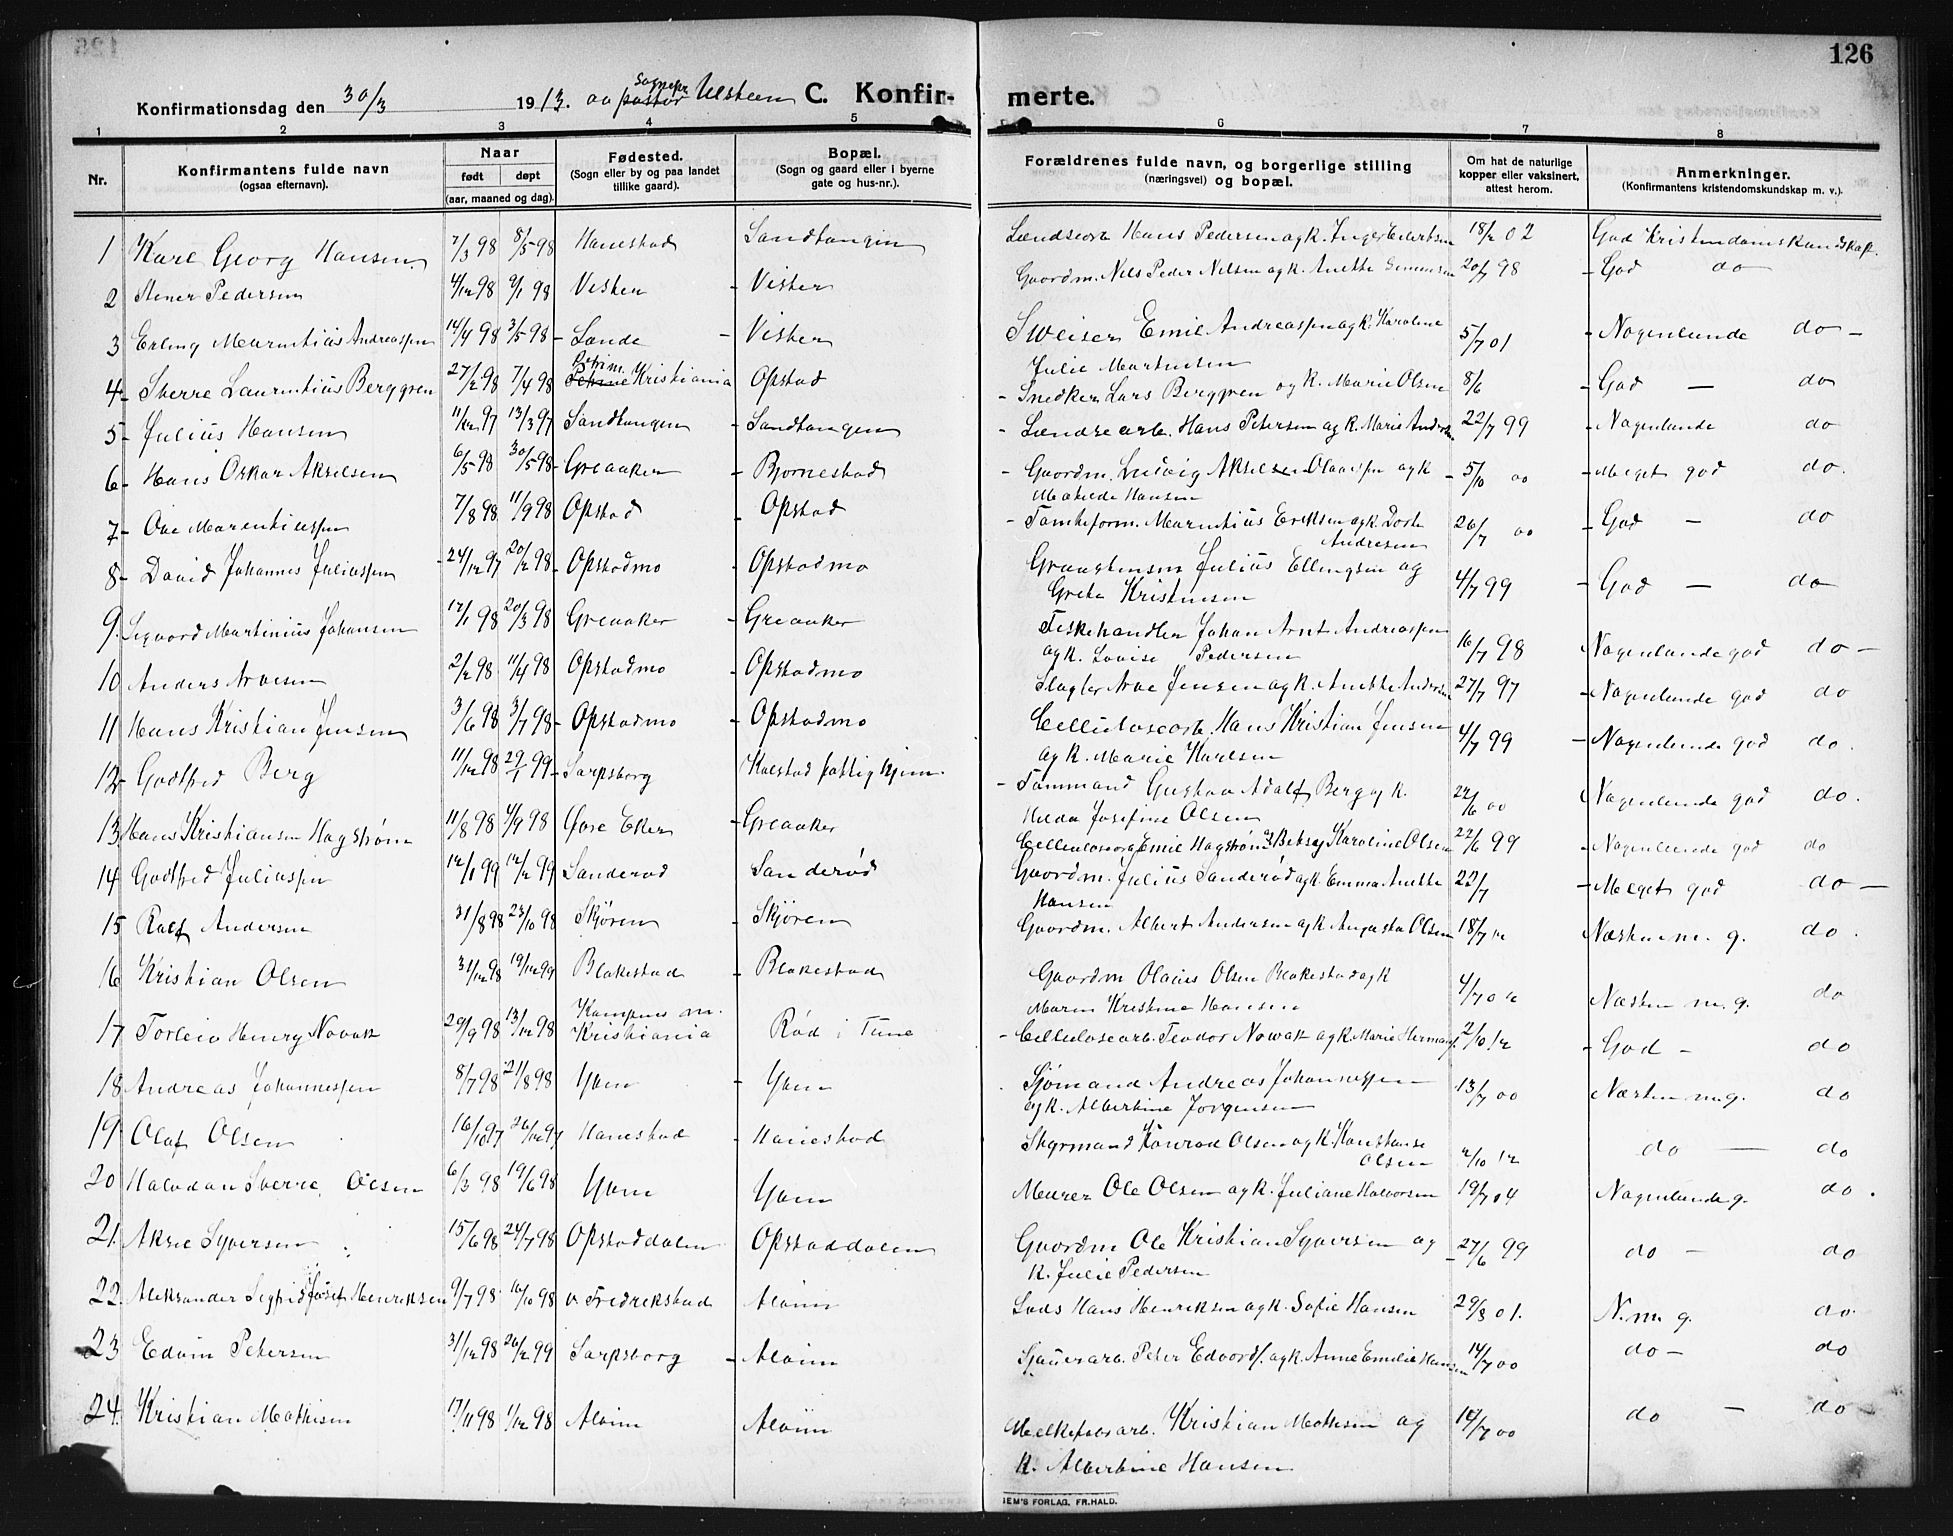 126
Konfirmationsdag den 30/3 1913. av sognepr. pastor Ulsteen C. Konfir- merte.
1 2 3 4 5 6 7 8
Nr.
Konfirmantens fulde navn
(ogsaa efternavn).
Naar
født døpt
(aar, maaned og dag).
Fødested.
(Sogn eller by og paa landet
tillike gaard).
Bopæl.
(Sogn og gaard eller i byerne
gate og hus-nr.).
Forældrenes fulde navn, og borgerlige stilling
(næringsvei) og bopæl.
Om hat de naturlige
kopper eller vaksinert,
attest herom.
Anmerkninger.
(Konfirmantens kristendomskundskap m. v.).
1 Karl Georg Hansen 7/3 98 8/5 98 Hanestad Sandtangen Hans Pedersen og k. Inger 18/2 02 God Kristendomskundskap.
2 Stener Pedersen 4/12 98 Vister - Vister Gaardm. Nils Peder Nilsen og k. Anette 20/7 98 - God do
3 Erling Marentius Andreassen 14/4 98 3/5 98 - Sande - Vister Sveiser Emil Andreassen og k. Karoline 5/7 01 - Nogenlunde do -
Julie Martinsen
4 - Sverre Laurentius Berggren 27/2 98 7/4 98 Petrim. Kristiania Opstad - Snedker Lars Berggren og k. Marie Olsen 8/6 - God - do
5 - Julius Hansen 11/12 97 13/3 97 Sandtangen - Sandtangen - Hans Petersen og k. Marie 22/7 99 - Nogenlunde do
6 - Hans Oskar Akselsen 6/5 98 30/5 98 - Greaaker - Bjørnestad - Gaardm. Ludvig Akselsen og k. - 5/10 00 - Meget god do.
Hansen
7 - Ove Marentiussen 7/8 98 11/9 98 Opstad - Opstad - Tomteform. Marentius Eriksen og k. Dorte 26/7 00 - God - do
Andresen
8 - David Johannes Juliussen - 24/12 97 20/2 98 - Opstadmo - Opstadmo Julius Ellingsen og 4/7 99 - God - do
Grete Kristensen
9. Sigvard Martinius Johansen 17/1 98 20/3 98 - Greaaker - Greaaker Fiskehandler Johan Arnt Andreassen 16/7 98 Nogenlunde god do -
og k. Lovise Pedersen
10 Anders Arvesen 2/2 98 11/4 98 Opstadmo - Opstadmo Slagter Arve Jensen og k. Anette Andersen 27/7 97 - Nogenlunde god do
11 Hans Kristian Jensen 3/6 98 3/7 98 - Opstadmo - Opstadmo Cellulosearb. Hans Kristian Jensen 4/7 99 - Nogenlunde god do.
og k. Marie Karlsen
12 - Godtfred Berg 11/12 98 29/1 99 - Sarpsborg Kalstad fattighjem. - Tømmand Gustav Adolf Berg og k. 22/6 00 Nogenlunde god do.
Hilda Josefine Olsen
13 Hans Kristiansen Hagstrøm 11/8 98 4/9 98 Øvre Eker - Greaaker Cellulosearb. Emil Hagstrøm og Betsey Karoline Olsen 22/6 99 - Nogenlunde god do
14 Godtfred Juliussen 12/1 99 12/2 99 Sanderød Sanderød Gaardm. Julius Sanderød og k. Emma Anette 22/7 - Meget god do -
Hansen
15 Ralf Andersen 31/8 98 23/10 98 Skjøren - Skjøren Gaardm. Albert Andersen og k. Augusta Olsen 18/7 12 Næsten m. g. do.
16 Kristian Olsen 31/12 98 19/12 99 Blakestad - Blakestad Gaardm Olaus Olsen Blakestad og k 4/7 012 Næsten m. g. do
Maren Kristine Hansen
17 Torleiv Henry Novak 20/9 98 13/12 98 Kampens m. Kristiania Rød i Tune - Cellulosearb. Teodor Nowak og k. Marie 2/10 12 - God - do
18 Andreas Johannessen 8/7 98 21/8 98 Yven - Yven Sjømand Andreas Johannessen 13/7 00 Næsten m. g. do
og k. Albertine Jørgensen
19 Olaf Olsen 16/10 97 26/12 97 Hanestad - Hanestad Styrmand Konrad Olsen og k. Konstanse 2/10 12 do - do
Olsen
20 Halvdan Sverre Olsen 6/3 98 19/6 98 Yven Yven Murer Ole Olsen og k. Juliane Halvorsen 19/7 04 Nogenlunde g. do.
21. Aksel Syversen 15/6 98 24/7 98 Opstaddalen Opstaddalen Gaardm Ole Kristian Syversen og - 27/6 99 do - do
k. Julie Pedersen
22. Aleksander Sigfrid Josef Henriksen 9/7 98 16/10 98 v. Fredrikstad Alvim Lods Hans Henriksen og k. Sofie Hansen 29/8 01. N. m. g. do
23 Edvin Petersen 31/12 98 26/2 99 Sarpsborg - Alvim Sjauerarb. Peter Edvards. og k. Anne Emilie Hansen 14/7 00 do - do
24. Kristian Mathisen 17/11 98 1/12 98 Alvim Alvim Kristian Mathisen og 14/7 00 do - do -
k. Albertine Hansen
IEM'S FORLAG, FR. HALD.